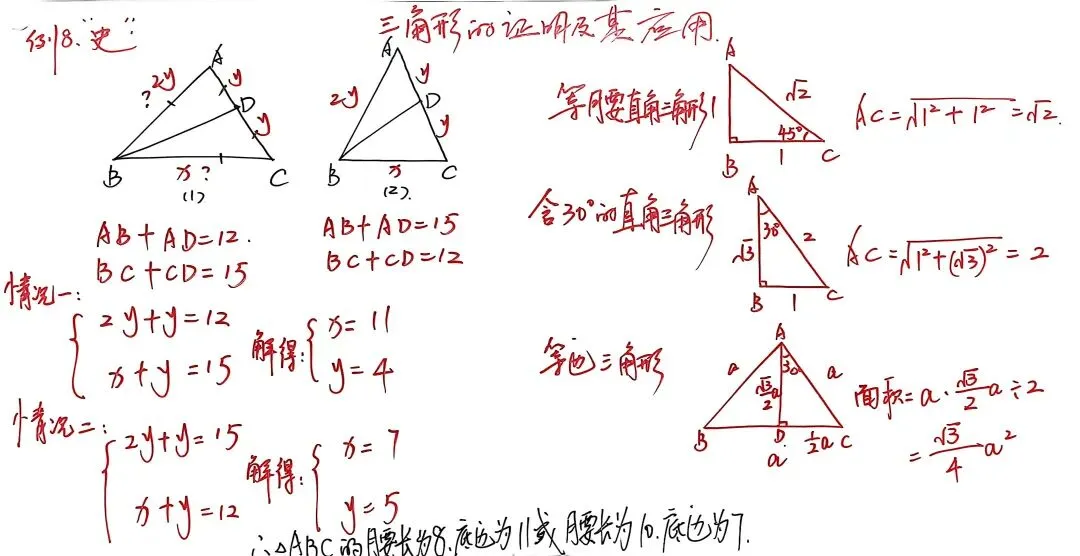 三角形的证明及其应用.
例8."史"
A
2y
?
y
D
y
B
x?
C
(1)
A
2y
y
D
y
B
x
C
(2).
AB+AD=12.
BC+CD=15
AB+AD=15
BC+CD=12
情况一:
2y+y=12
x+y=15
解得:
x=11
y=4
情况二:
2y+y=15
x+y=12
解得:
x=7
y=5
∴△ABC的腰长为8.底边为11或腰长为10.底边为7.
等腰直角三角形
A
1
√2
45°
B
1
C
AC=√1²+1²=√2.
含30°的直角三角形
A
30°
√3
2
B
1
C
AC=√1²+(√3)²=2
等边三角形
A
a
30
a
√3/2 a
B
D
1/2a
C
a
面积=a·√3/2 a÷2
=√3/4 a²